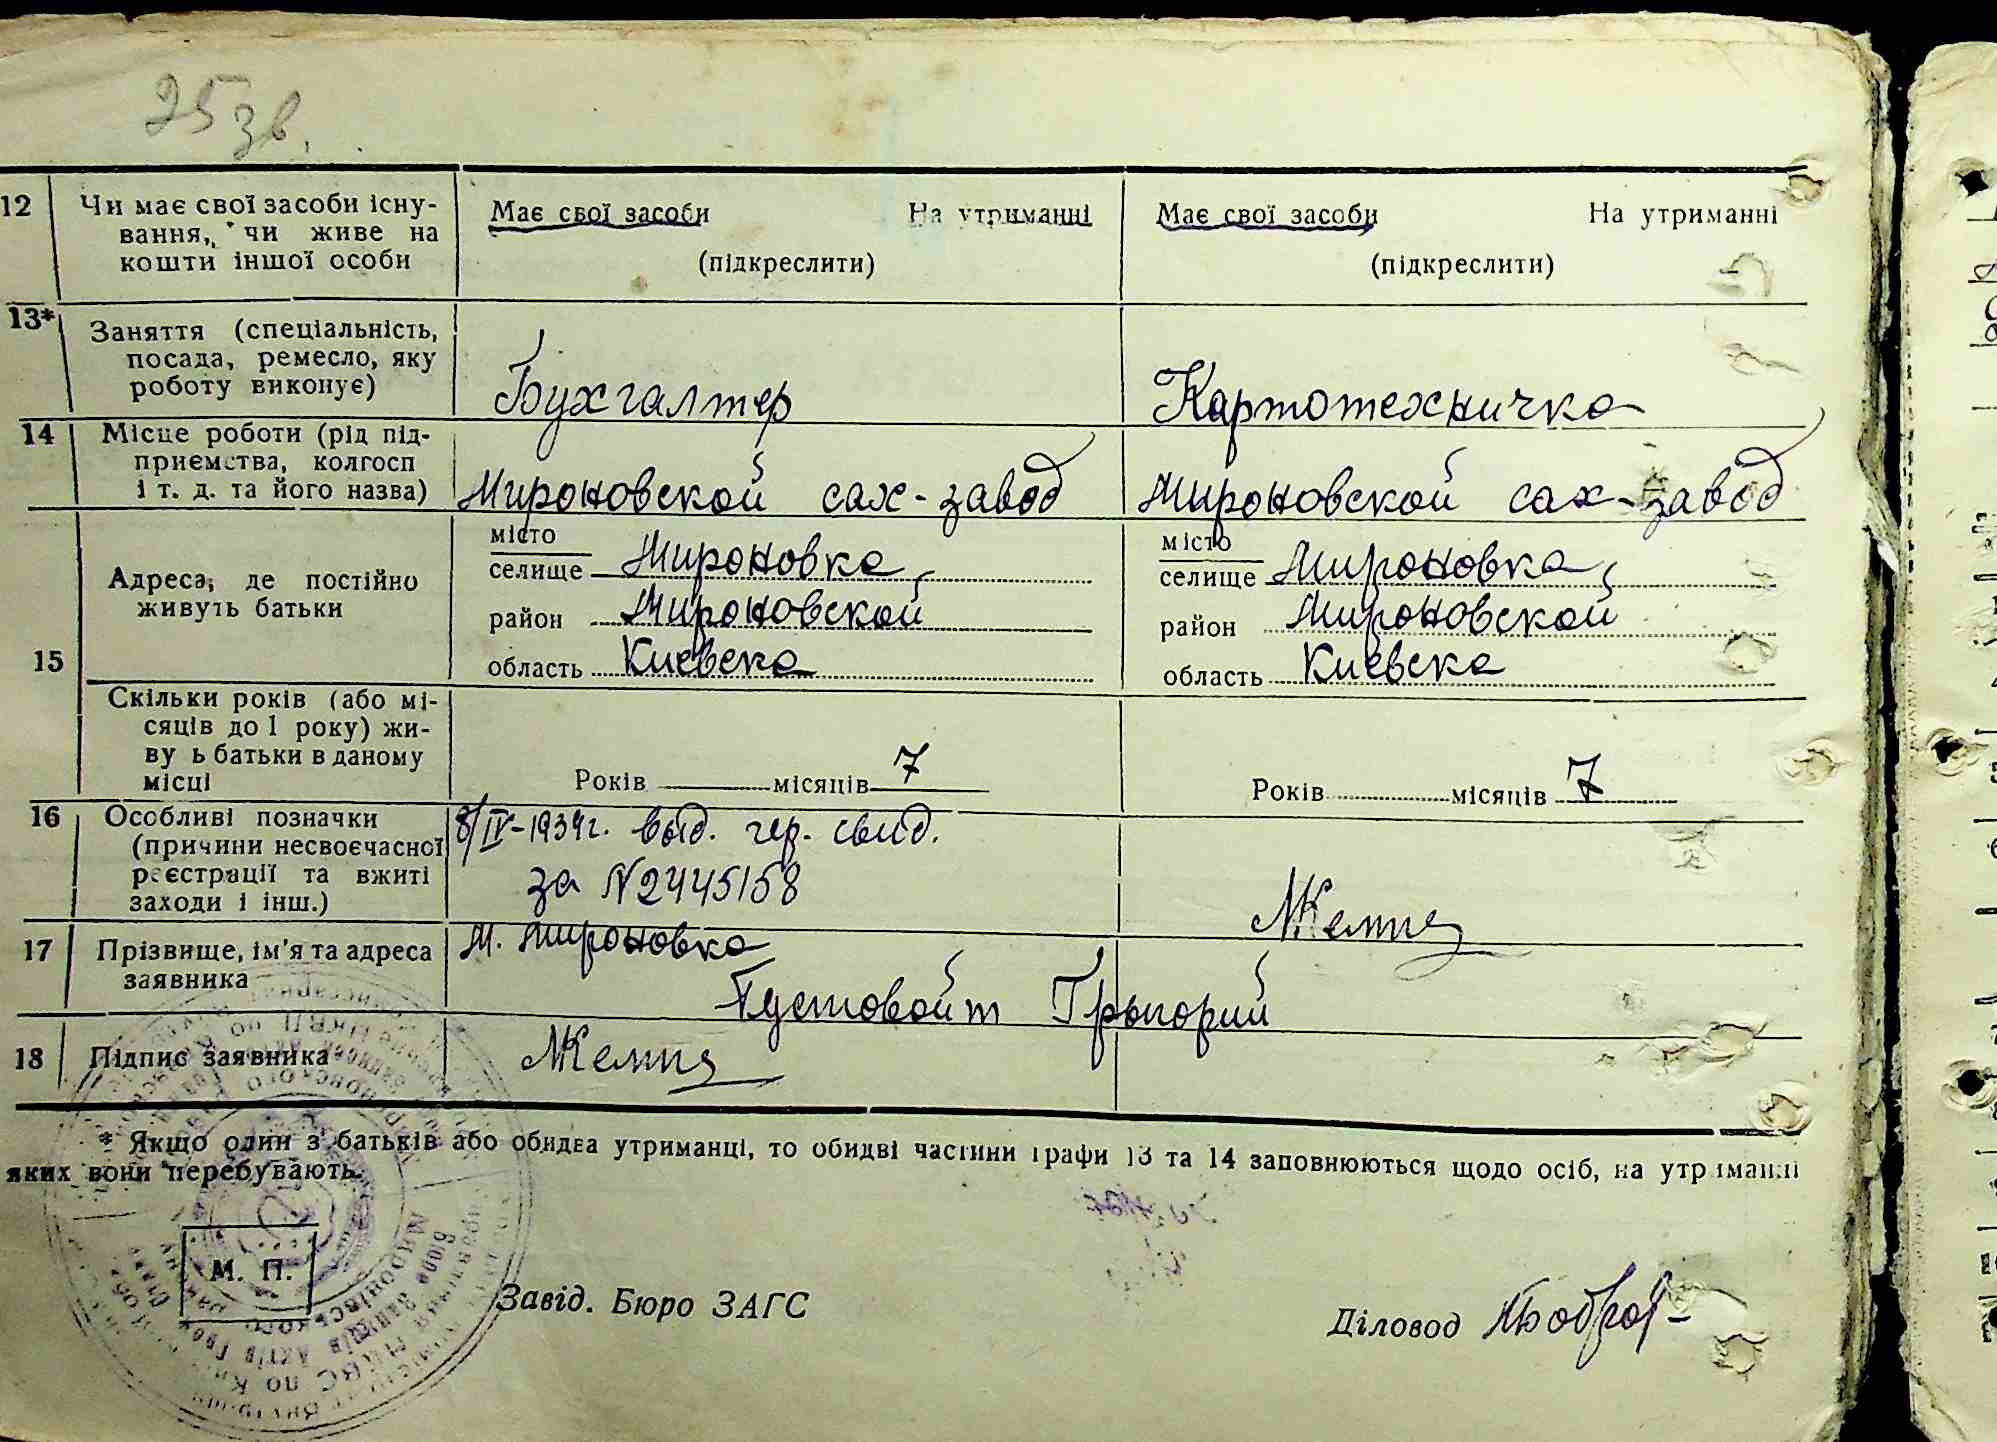 25 зв.
12 Чи має свої засоби існу-
вання, чи живе на
кошти іншої особи
Має свої засоби На утриманні
(підкреслити)
Має свої засоби На утриманні
(підкреслити)
13* Заняття (спеціальність,
посада, ремесло, яку
роботу виконує)
Бухгалтер
Картотехничка
14 Місце роботи (рід під-
приємства, колгосп
і т. д. та його назва)
Мироновской сах-завод
Мироновской сах-завод
15 Адреса, де постійно
живуть батьки
місто
селище Мироновка
район Мироновской
область Киевска
місто
селище Мироновка
район Мироновской
область Киевска
Скільки років (або мі-
сяців до 1 року) жи-
ву ь батьки в даному
місці
Років місяців 7
Років місяців 7
16 Особливі позначки
(причини несвоєчасної
реєстрації та вжиті
заходи і інш.)
8/IV-1939г. выд. гер. свид.
за N2445158
17 Прізвище, ім'я та адреса
заявника
М. Мироновка
Пустовойт Грыгорий
18 Підпис заявника
* Якщо один з батьків або обидва утриманці, то обидві частини графи 13 та 14 заповнюються щодо осіб, на утриманні
яких вони перебувають.
М. П.
Завід. Бюро ЗАГС
Діловод